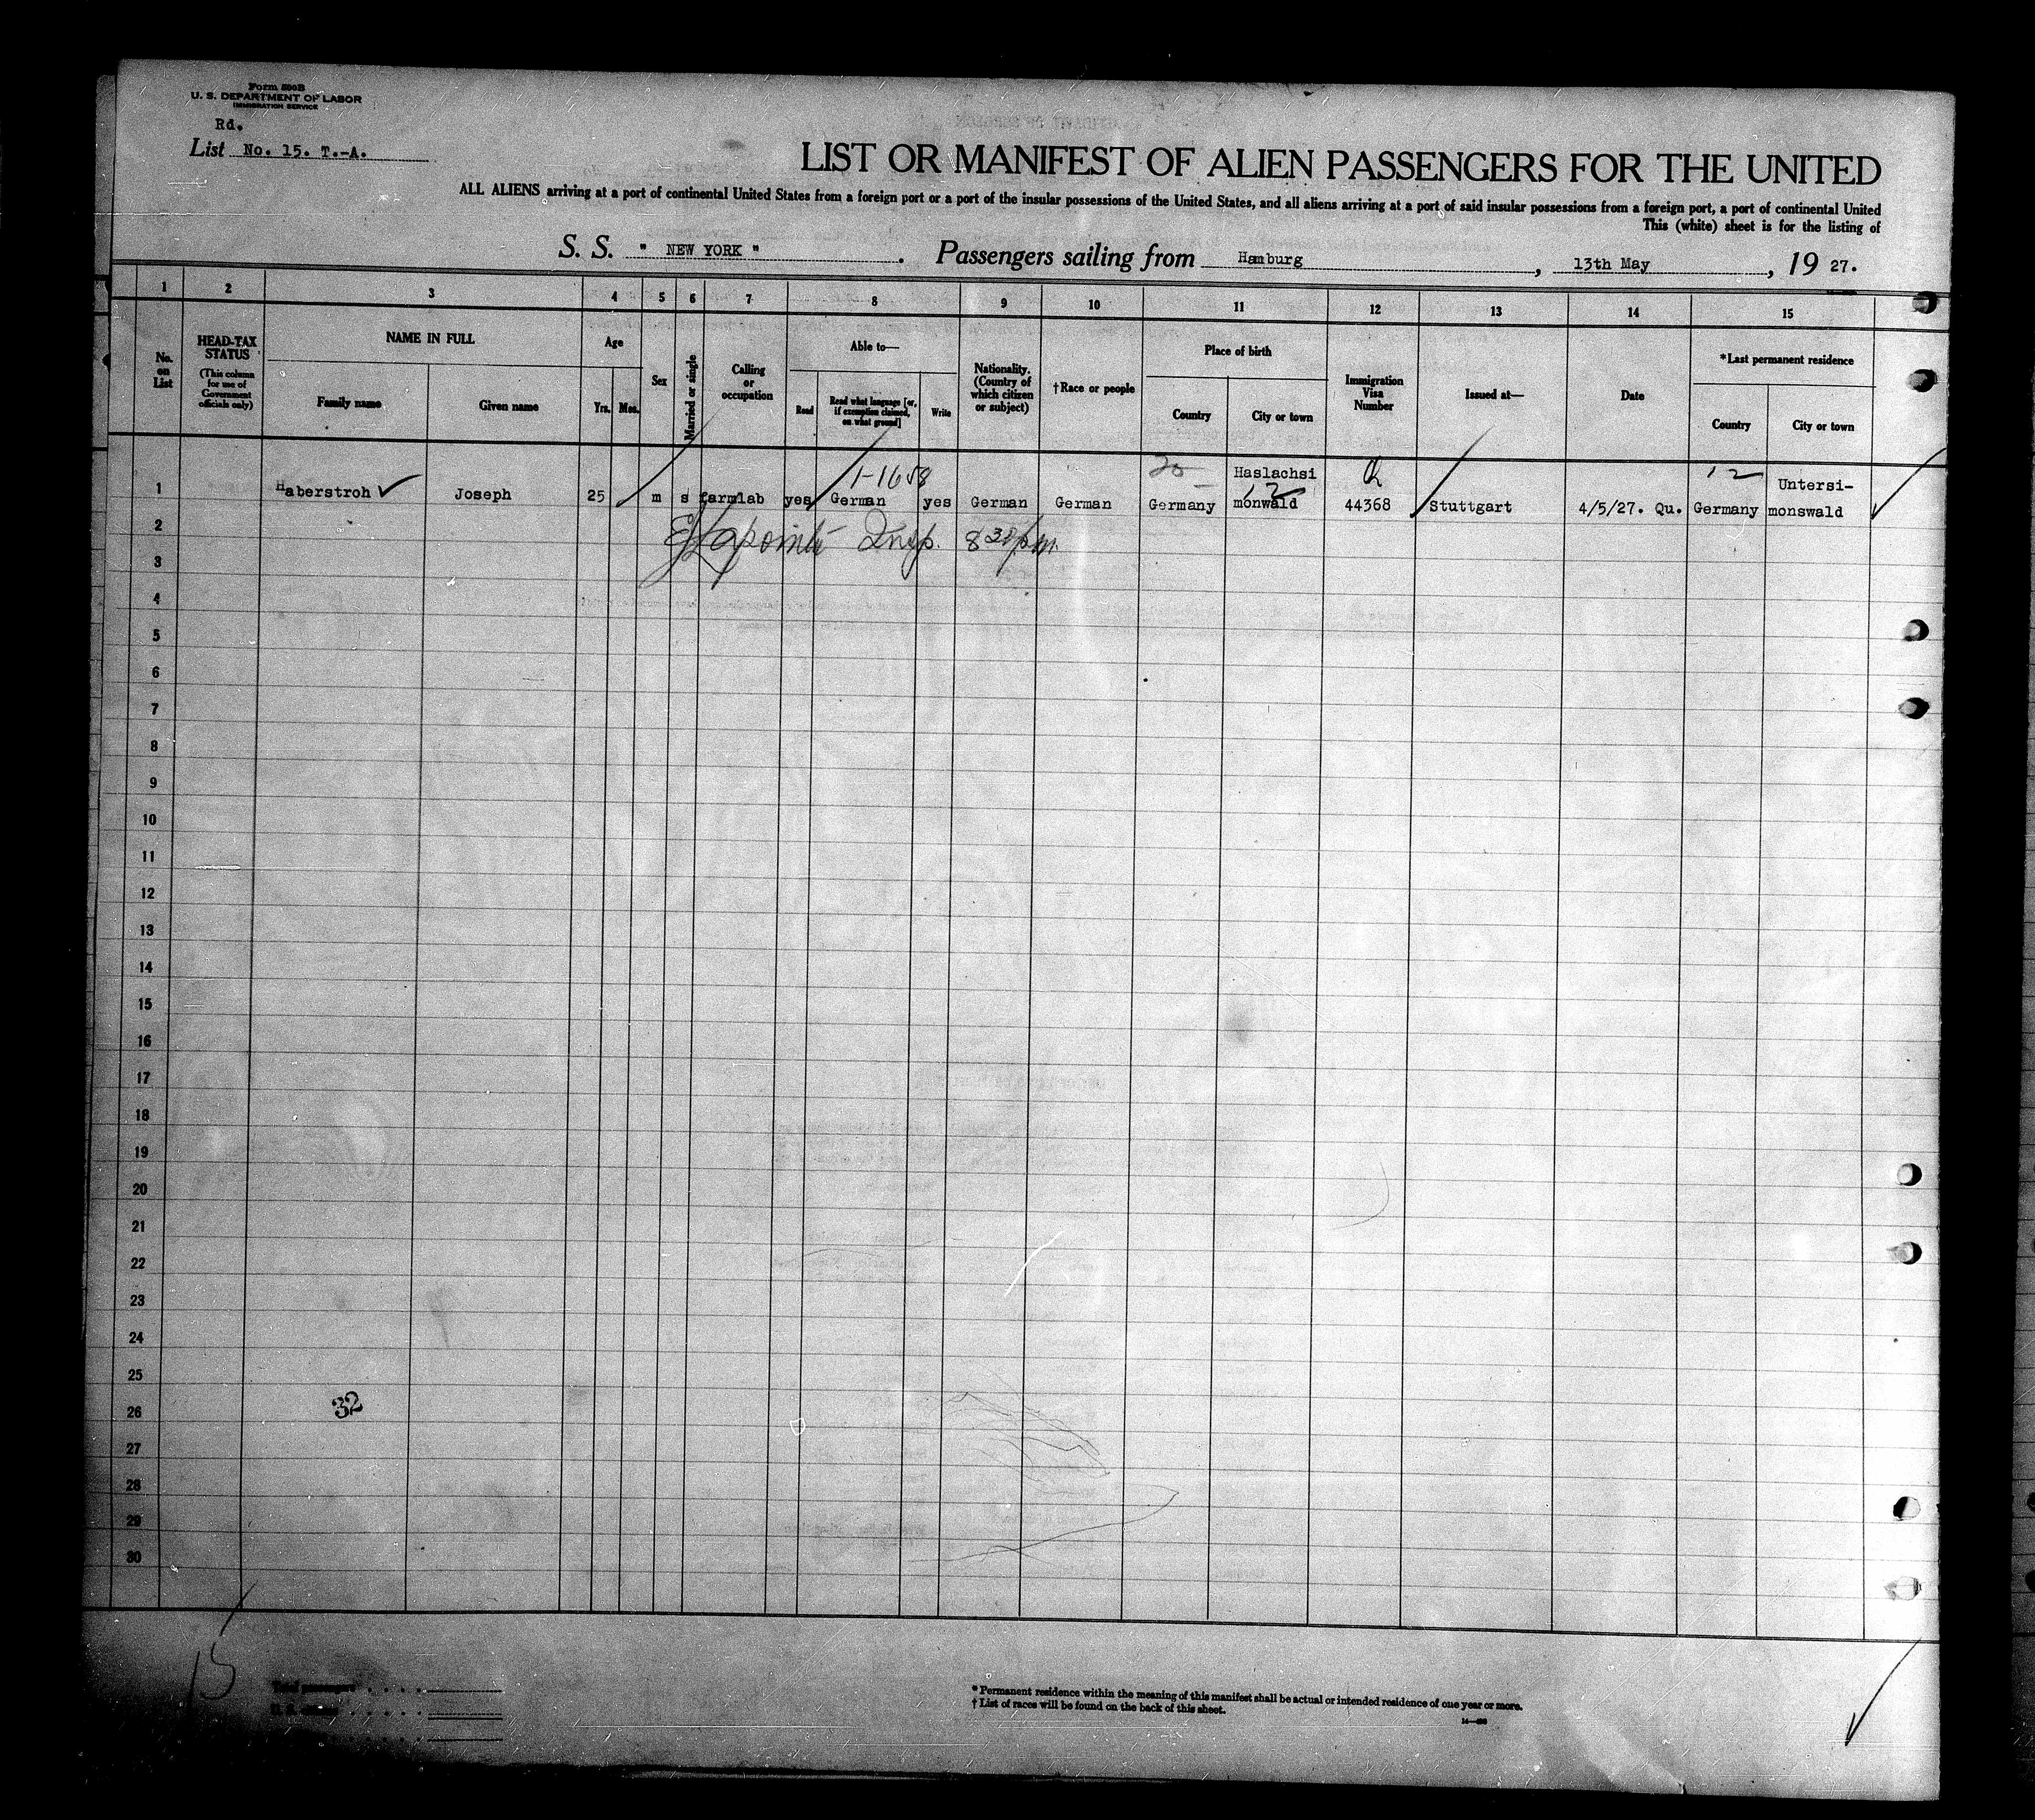 Form 500B
U. S. DEPARTMENT OF LABOR
IMMIGRATION SERVICE
Rd.
List No. 15. T.-A.
LIST OR MANIFEST OF ALIEN PASSENGERS FOR THE UNITED
ALL ALIENS arriving at a port of continental United States from a foreign port or a port of the insular possessions of the United States, and all aliens arriving at a port of said insular possessions from a foreign port, a port of continental United
This (white) sheet is for the listing of
S. S. " NEW YORK ". Passengers sailing from Hamburg, 13th May, 19 27.
1 2 3 4 5 6 7 8 9 10 11 12 13 14 15
No. on List
HEAD-TAX STATUS
(This column for use of Government officials only)
NAME IN FULL
Family name
Given name
Age
Yrs. Mos.
Sex
Married or single
Calling or occupation
Able to—
Read
Read what language [or, if exemption claimed, on what ground]
Write
Nationality. (Country of which citizen or subject)
†Race or people
Place of birth
Country
City or town
Immigration Visa Number
Issued at—
Date
*Last permanent residence
Country
City or town
1-1658
1 Haberstroh Joseph 25 m s farmlab yes German yes German German Germany Haslachsi monwald 44368 Stuttgart 4/5/27. Qu. Germany Untersi- monswald
12
12
2 Lapointe Insp. 8 30 pm.
3
4
5
6
7
8
9
10
11
12
13
14
15
16
17
18
19
20
21
22
23
24
25
26
32
27
28
29
30
15
Total passengers
* Permanent residence within the meaning of this manifest shall be actual or intended residence of one year or more.
† List of races will be found on the back of this sheet.